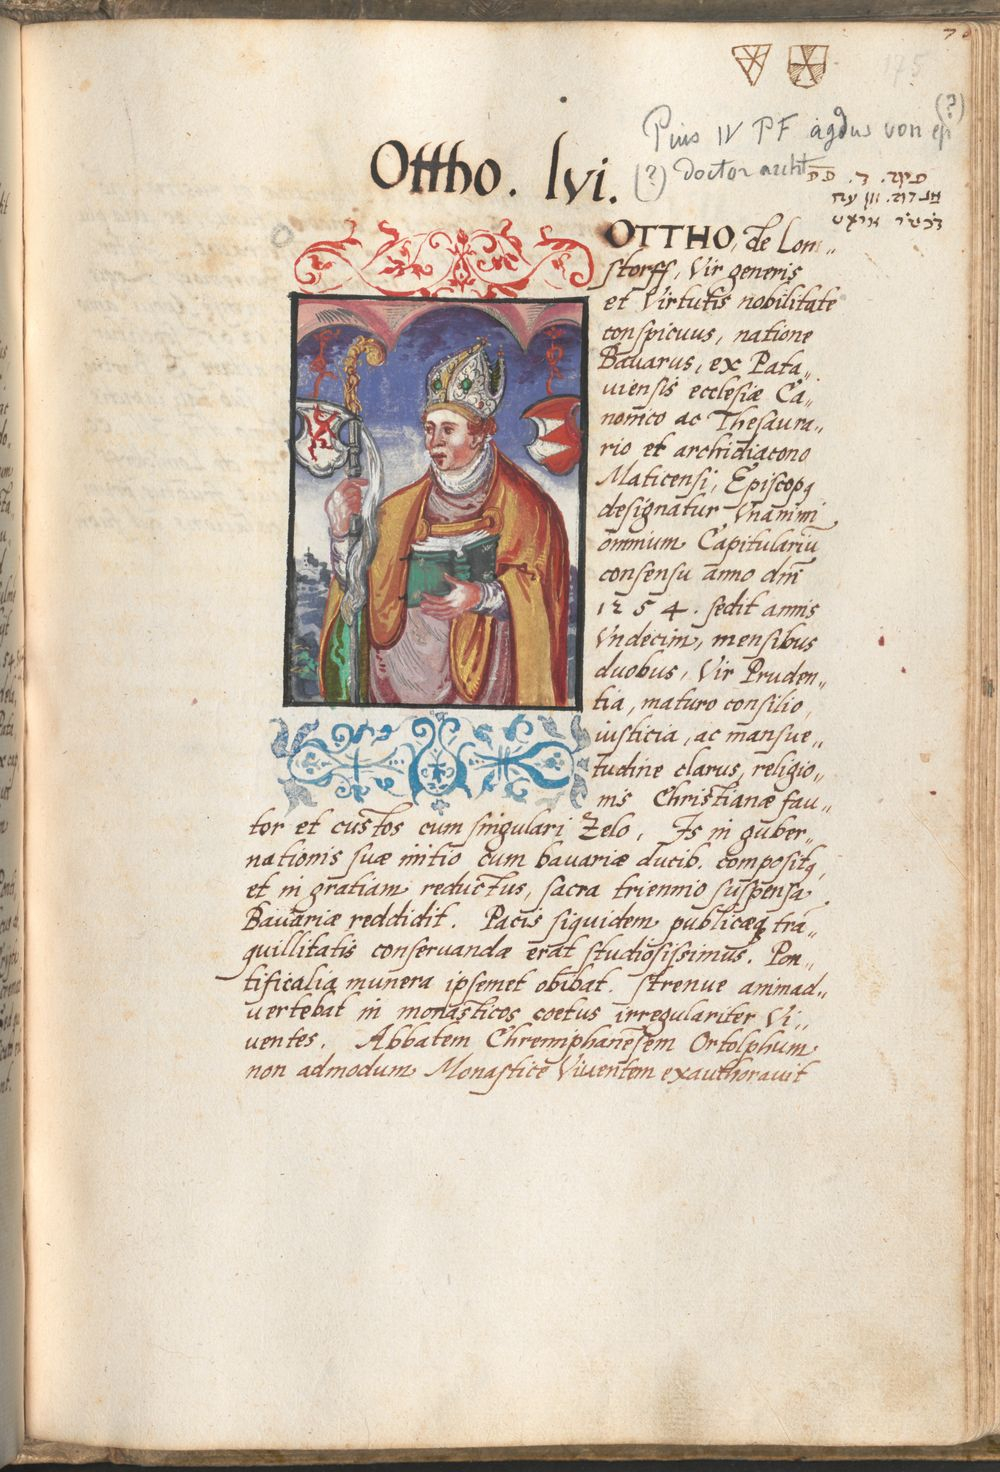 175
Pius IV PF agdus von ep (?)
(?) doctor
Ottho. lvi.
OTTHO, de Lom„
storff, Vir generis
et Virtutis nobilitate
conspicuus, natione
Bavarus, ex Pata„
viensis ecclesiæ Ca„
nonico ac Thesaura„
rio et archidiacono
Maticensi, Episcopq
designatur Vnanimi
omnium Capitulariu
consensu anno dm̄
1254. sedit annis
Vndecim, mensibus
duobus, Vir Pruden„
tia, maturo consilio,
iusticia, ac mansue„
tudine clarus, religio„
nis Christianæ fau„
tor et custos cum singulari Zelo, Is in guber„
nationis suæ initio cum bavariæ ducib. compositq,
et in gratiam reductus, sacra triennio suspensa
Bavariæ reddidit. Pacis siquidem publicæq trā„
quillitatis conservandæ erat studiosissimus. Pon„
tificalia munera ipsemet obibat. strenue animad„
vertebat in monasticos coetus irregulariter Vi„
uentes. Abbatem Chremiphanēsem Ortolphum
non admodum Monasticē Viventem exauthoravit